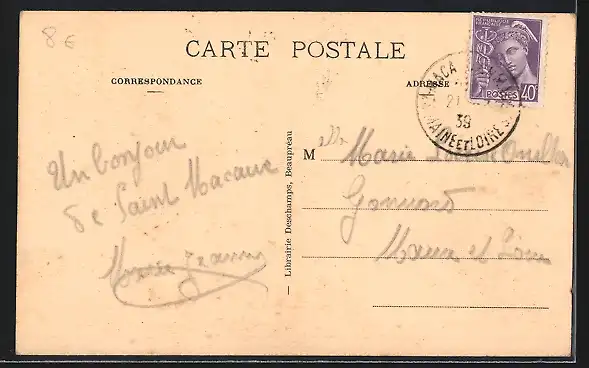 8 €
CARTE POSTALE
CORRESPONDANCE
ADRESSE
RÉPUBLIQUE FRANÇAISE
POSTES 40
MACA
21
39
MAINE ET LOIRE
Un bonjour
de Saint Macaire
Marie Jeanne
Librairie Deschamps, Beaupréau
M elle Marie
Gonnord
Maine et Loire